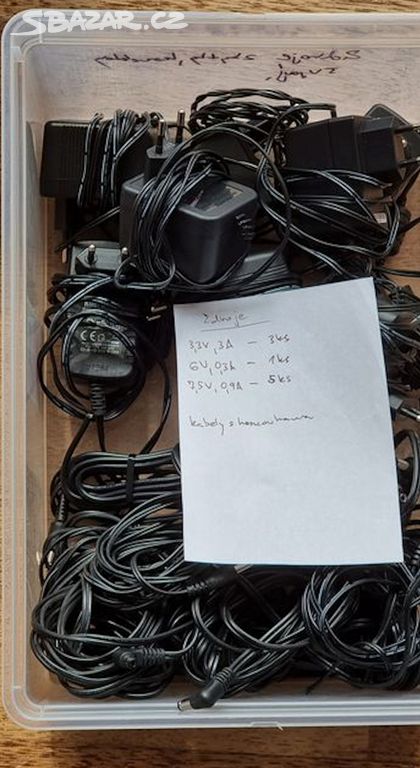 SBAZAR.CZ
Zdroje
Zdroje
3,3V, 3A – 3ks
6V, 0,3A – 1ks
7,5V, 0,9A – 5ks
kabely s koncovkama
CE